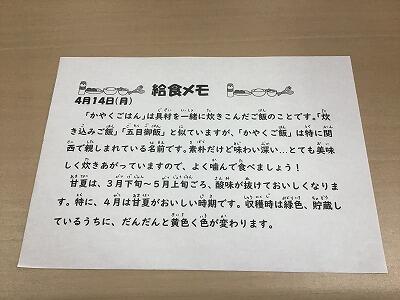 給食メモ
4月14日(月)
「かやくごはん」は具材を一緒に炊きこんだご飯のことです。「炊
き込みご飯」「五目御飯」と似ていますが、「かやくご飯」は特に関
西で親しまれている名前です。素朴だけど味わい深い…とても美味
しく炊きあがっていますので、よく噛んで食べましょう！
甘夏は、3月下旬～5月上旬ごろ、酸味が抜けておいしくなりま
す。特に、4月は甘夏がおいしい時期です。収穫時は緑色、貯蔵し
ているうちに、だんだんと黄色く色が変わります。